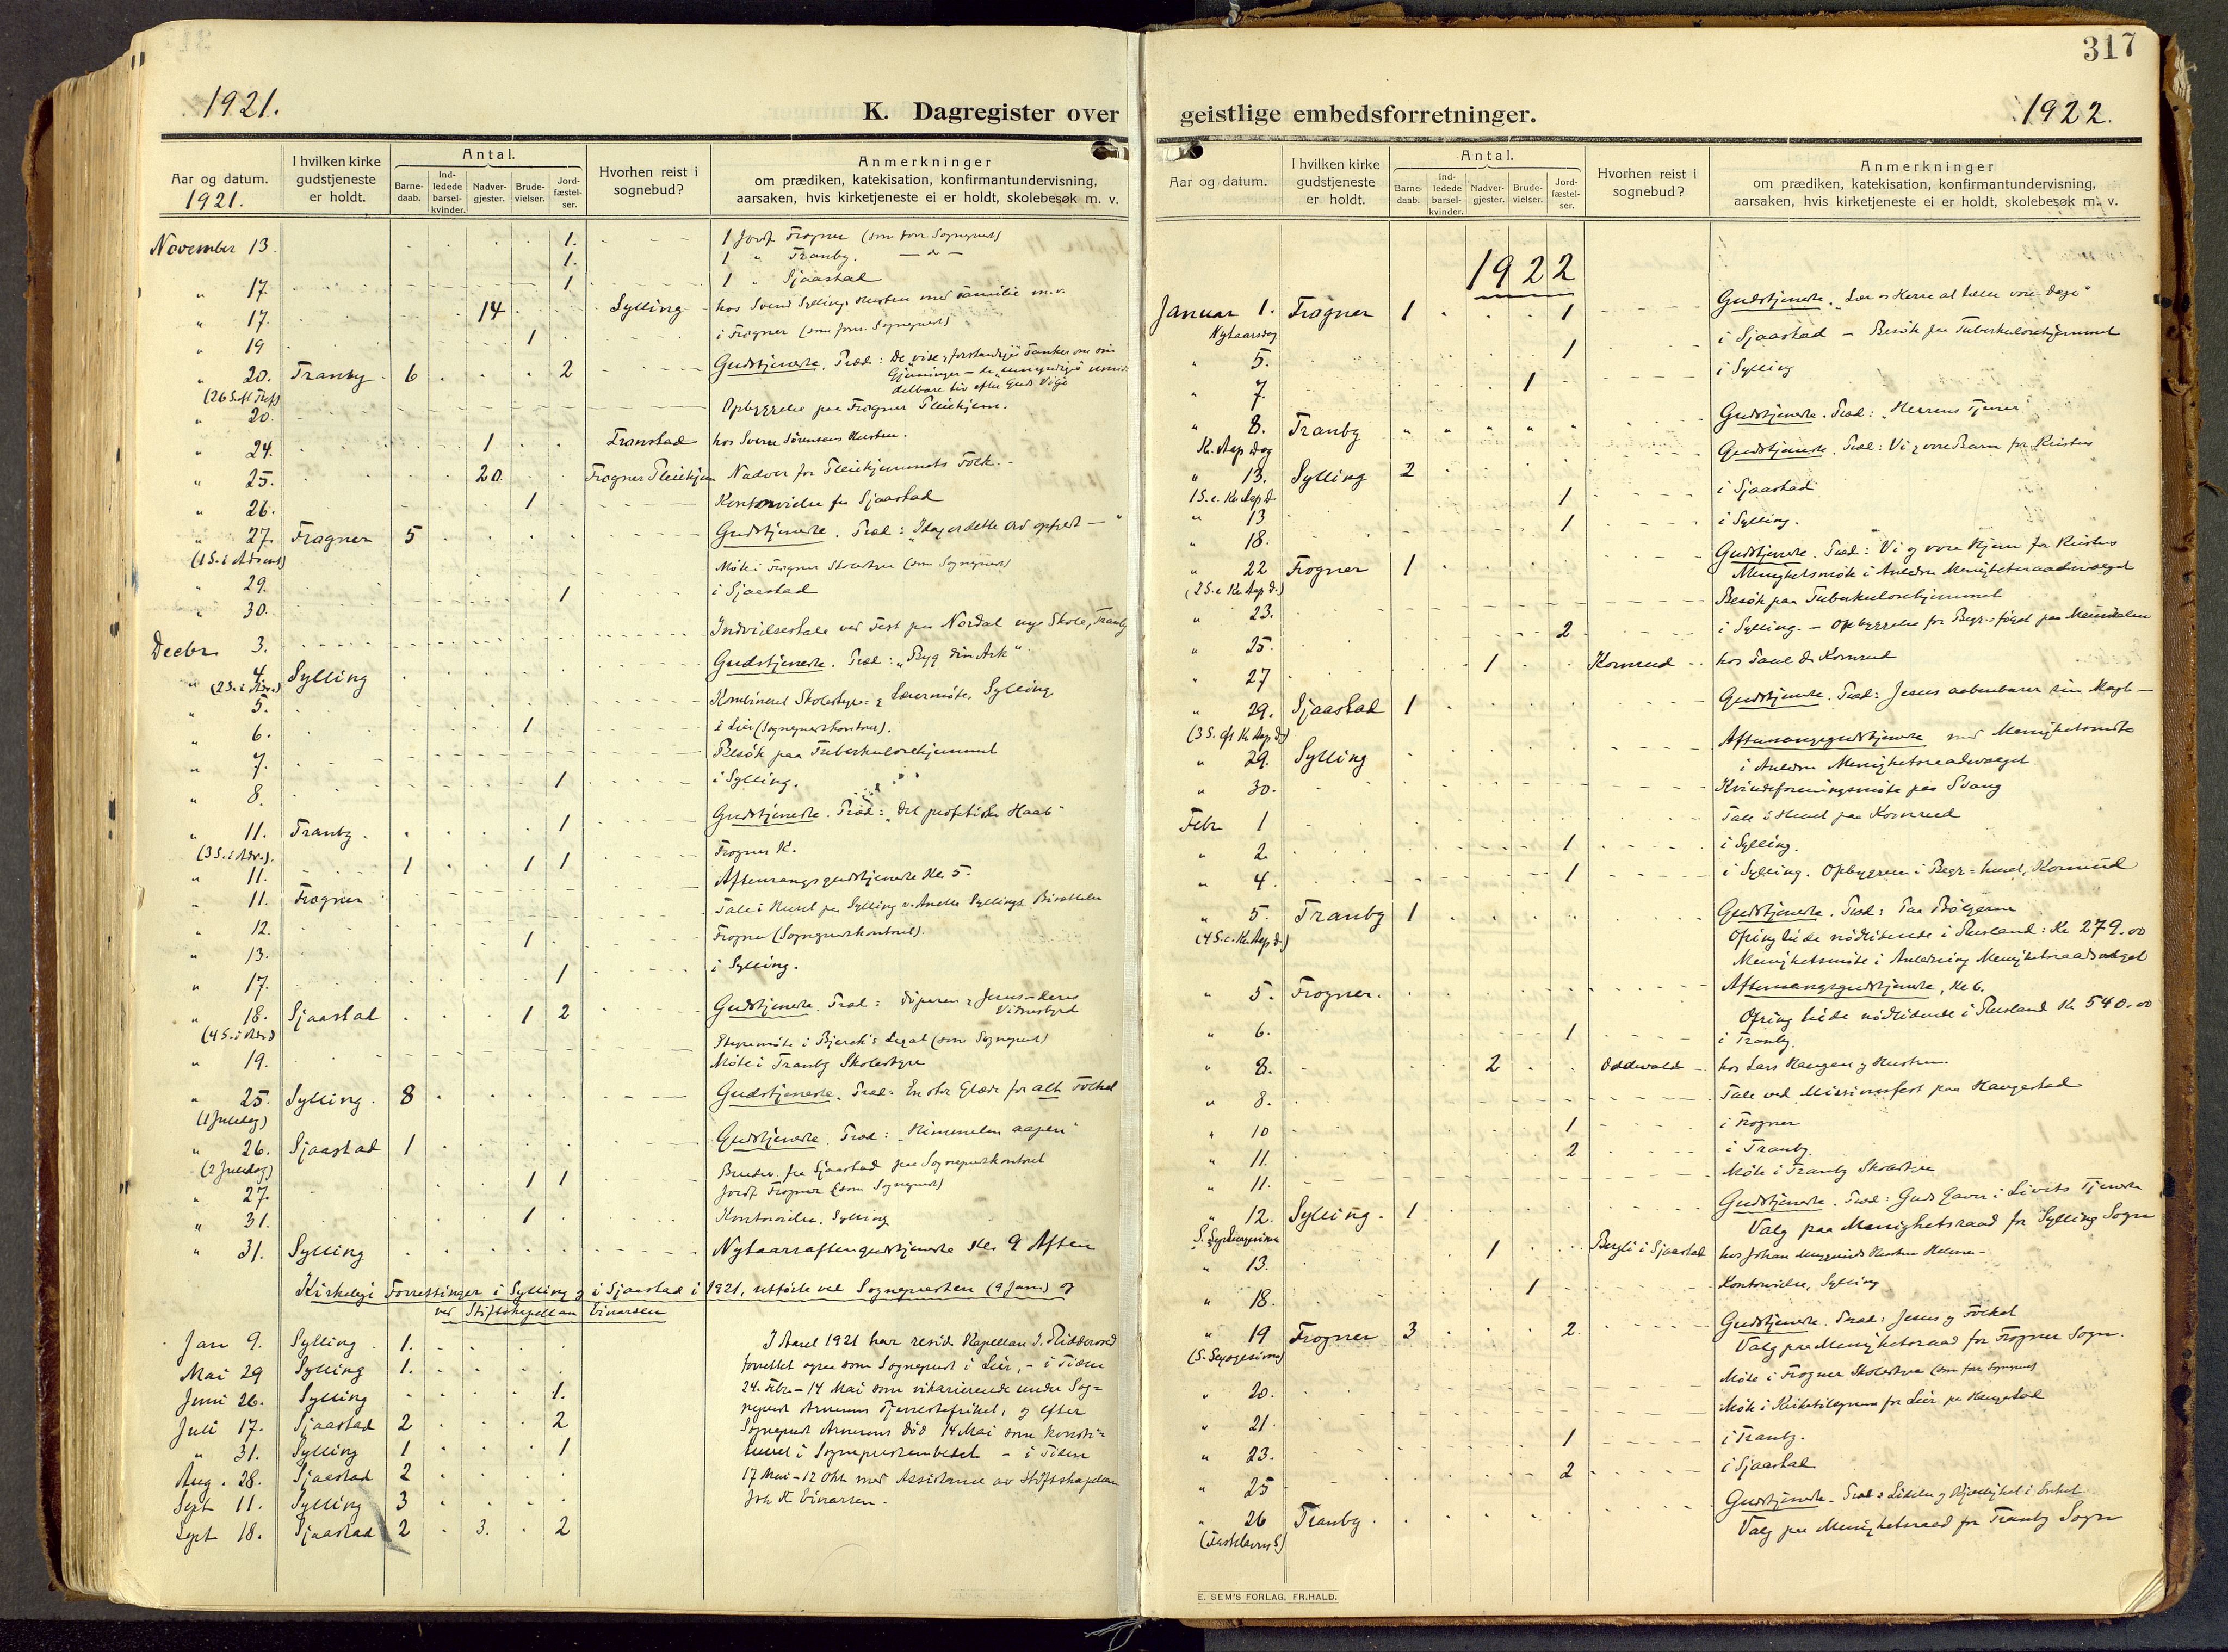 1921.
K. Dagregister over
Aar og datum.
1921.
I hvilken kirke gudstjeneste er holdt.
Antal.
Barne-daab.
Ind-ledede barsel-kvinder.
Nadver-gjester.
Brude-vielser.
Jord-fæstel-ser.
Hvorhen reist i sognebud?
Anmerkninger
om prædiken, katekisation, konfirmantundervisning,
aarsaken, hvis kirketjeneste ei er holdt, skolebesøk m. v.
November 13. 1. 1 Jordf Frogner (som forr. Sogneprest)
1. 1 " Tranby. — " —
" 17. 1 1 " Sjaastad
" 17. 14 Sylling hos Svend Syllings Hustru med Familie m.v.
" 19 1 i Frogner (som forr. Sogneprest)
" 20. Tranby 6 2 Gudstjeneste. Præd: De vise
(26 S. e. Tref)
" 20. Opbyggelse paa Frogner Pleiehjem.
" 24. 1 Tronstad hos Sverre Sørensens Hustru.
" 25. 20. Frogner Pleiehjem Nadver for Pleiehjemmets Folk.
" 26. 1 Kontorvielse fra Sjaastad
" 27. Frogner 5 Gudstjeneste. Præd: Idag er dette Ord opfyldt — "
(1 S. i Advent)
" 29. Møte i Frogner Skolestyre (som Sogneprest)
" 30. 1 i Sjaastad
Decbr 3. Indvielsestale ved Fest paa Nordal nye Skole, Tranby
" 4. Sylling Gudstjeneste. Præd: "Byg din Ark"
(2 S. i Adv.)
" 5. Kombineret Skolestyre- & Lærermøte, Sylling
" 6. 1 i Lier (Sogneprestkontoret).
" 7. Besøk paa Tuberkulosehjemmet
" 8. 1 i Sylling.
" 11. Tranby. 1 Gudstjeneste. Præd: "Det profetiske Haab"
(3 S. i Adv.).
" 11. 1 1 1 Frogner K.
" 11. Frogner Aftensangsgudstjeneste Kl. 5.
" 12. Tale i Huset paa Sylling v. Anette Syllings
" 13. 1 Frogner (Sogneprestkontoret).
" 17. 1 i Sylling.
" 18. Sjaastad 1 2 Gudstjeneste. Præd: Døperen & Jesus – deres
Vidnesbyrd
(4 S. i Adv.)
" 19. Styremøte i Bjerck's Legat (som Sogneprest)
Møte i Tranby Skolestyre
" 25. Sylling. 8 Gudstjeneste. Præd: En stor Glæde for alt Folket
(1 Juledag)
" 26. Sjaastad 1 Gudstjeneste. Præd: "Himmelen aapen"
(2 Juledag)
" 27. 1 1 Brudev. fra Sjaastad paa Sogneprestkontoret
Jordf Frogner (som Sogneprest)
" 31. 1 Kontorvielse, Sylling
" 31. Sylling Nytaarsaftengudstjeneste Kl. 9 Aften
Kirkelige Forretninger i Sylling og i Sjaastad i 1921, utførte ved Sognepresten (9 Jan) og
ved Stiftskapellan Einarsen
Jan 9. Sylling 1.
Mai 29 Sylling 1.
Juni 26. Sylling 1.
Juli 17. Sjaastad 2 2
" 31. Sylling 1 1
Aug. 28. Sjaastad 2
Sept 11. Sylling 3
Sept 18. Sjaastad 2 3. 2
I Aaret 1921 har resid. Kapellan J. Ridderstad
forrettet ogsaa som Sogneprest i Lier, – i Tiden
24. Febr. – 14 Mai som vikarierende under Sog=
neprest Arnesens Tjenestefrihet, og efter
Sogneprest Arnesens Død 14 Mai som konsti=
tueret i Sogneprestembedet – i Tiden
17 Mai – 12 Okt. med Assistance av Stiftskapellan
Joh Einarsen.
317
geistlige embedsforretninger.
1922.
Aar og datum.
I hvilken kirke gudstjeneste er holdt.
Antal.
Barne-daab.
Ind-ledede barsel-kvinder.
Nadver-gjester.
Brude-vielser.
Jord-fæstel-ser.
Hvorhen reist i sognebud?
Anmerkninger
om prædiken, katekisation, konfirmantundervisning,
aarsaken, hvis kirketjeneste ei er holdt, skolebesøk m. v.
1922
Januar 1. Frogner 1 1 Gudstjeneste. "Lær os Herre at tælle vore Dage"
Nytaarsdag
" 5. 1 i Sjaastad – Besøk paa Tuberkulosehjemmet
" 7. 1 i Sylling
" 8. Tranby Gudstjeneste. Præd: "Herrens Tjener"
" 13. Sylling 2 Gudstjeneste. Præd: Vi & vore Barn for Kristus
" 13 1 i Sjaastad
" 18. 1 i Sylling.
" 22 Frogner 1 Gudstjeneste. Præd: Vi og vore Hjem for Kristus
Menighetsmøte i Anledn. Menighetsraadsvalget
" 23. Besøk paa Tuberkulosehjemmet
" 25. 2 i Sylling. – Opbyggelse for
" 27 1 Kornrud hos Kornrud
" 29. Sjaastad 1 Gudstjeneste. Præd: Jesus aabenbarer sin Magt –
" 29. Sylling Aftensangsgudstjeneste med Menighetsmøte
i Anledn Menighetsraadsvalget
" 30. Kvindeforeningsmøte paa Svang
Febr 1 Tale i Huset paa Kornrud
" 2. 1 i Sylling.
" 4. 1 i Sylling. Opbyggelse i Begr.=huset, Kornrud
" 5. Tranby 1 Gudstjeneste. Præd: Paa Bølgerne
Ofring til de nødlidende i Rusland: Kr 279.00
Menighetsmøte i Anledning Menighetsraadsvalget
" 5. Frogner. Aftensangsgudstjeneste, Kl 6.
Ofring til de nødlidende i Rusland Kr 540.00
" 6. 1 i Tranby.
" 8. 2 Oddevald hos Lars Haugen og Hustru.
" 8. Tale ved Missionsfest paa Haugestad
" 10 1 i Frogner
" 11. 2 i Tranby.
" 11. Møte i Tranby Skolestyre
" 12. Sylling. 1 Gudstjeneste. Præd: Guds Gaver i Livets Tjeneste
Valg paa Menighetsraad for Sylling Sogn
S. Septuagesima
" 13. 1 Bergli i Sjaastad hos Johan
" 18. 1 Kontorvielse, Sylling
" 19 Frogner 3 2 Gudstjeneste. Præd: Jesus og Folket
Valg paa Menighetsraad for Frogner Sogn.
(S. Sexagesima)
" 20. Møte i Frogner Skolestyre (som forr. Sogneprest)
" 21. Møte i Kirketilsynet for Lier paa Haugestad
" 23. 1 i Tranby.
" 25 2 i Sjaastad
" 26 Tranby. Gudstjeneste – Præd:
Valg paa Menighetsraad for Tranby Sogn
(Fastelavns S)
E. SEM'S FORLAG, FR.HALD.